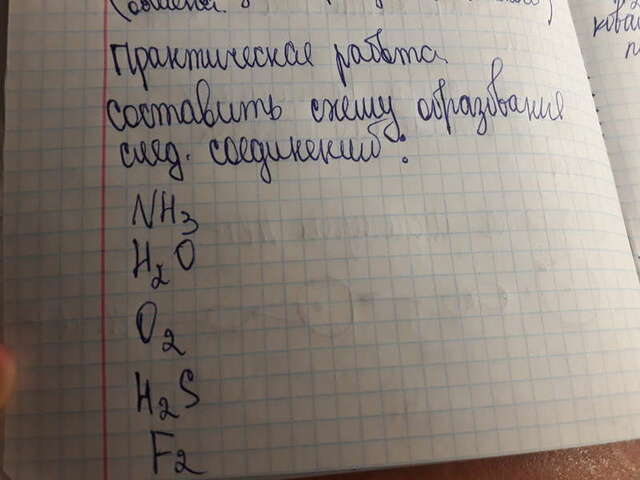 Практическая работа.
составить схему образования
след. соединений:
NH3
H2O
O2
H2S
F2